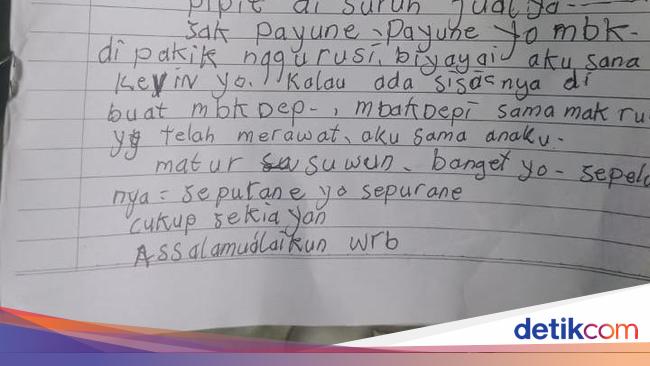 pipit di suruh jual ya
sak payune, payune yo mbk-
di pakik nggurusi, biyayai aku sana
Kevin yo. Kalau ada sisasnya di
buat mbkDep-, mbakDepi sama mak ru
yg telah merawat, aku sama anaku.
matur suwun, banget yo- sepel
nya = sepurane yo sepurane
cukup sekia yan
Assalamualaikun wrb
detikcom